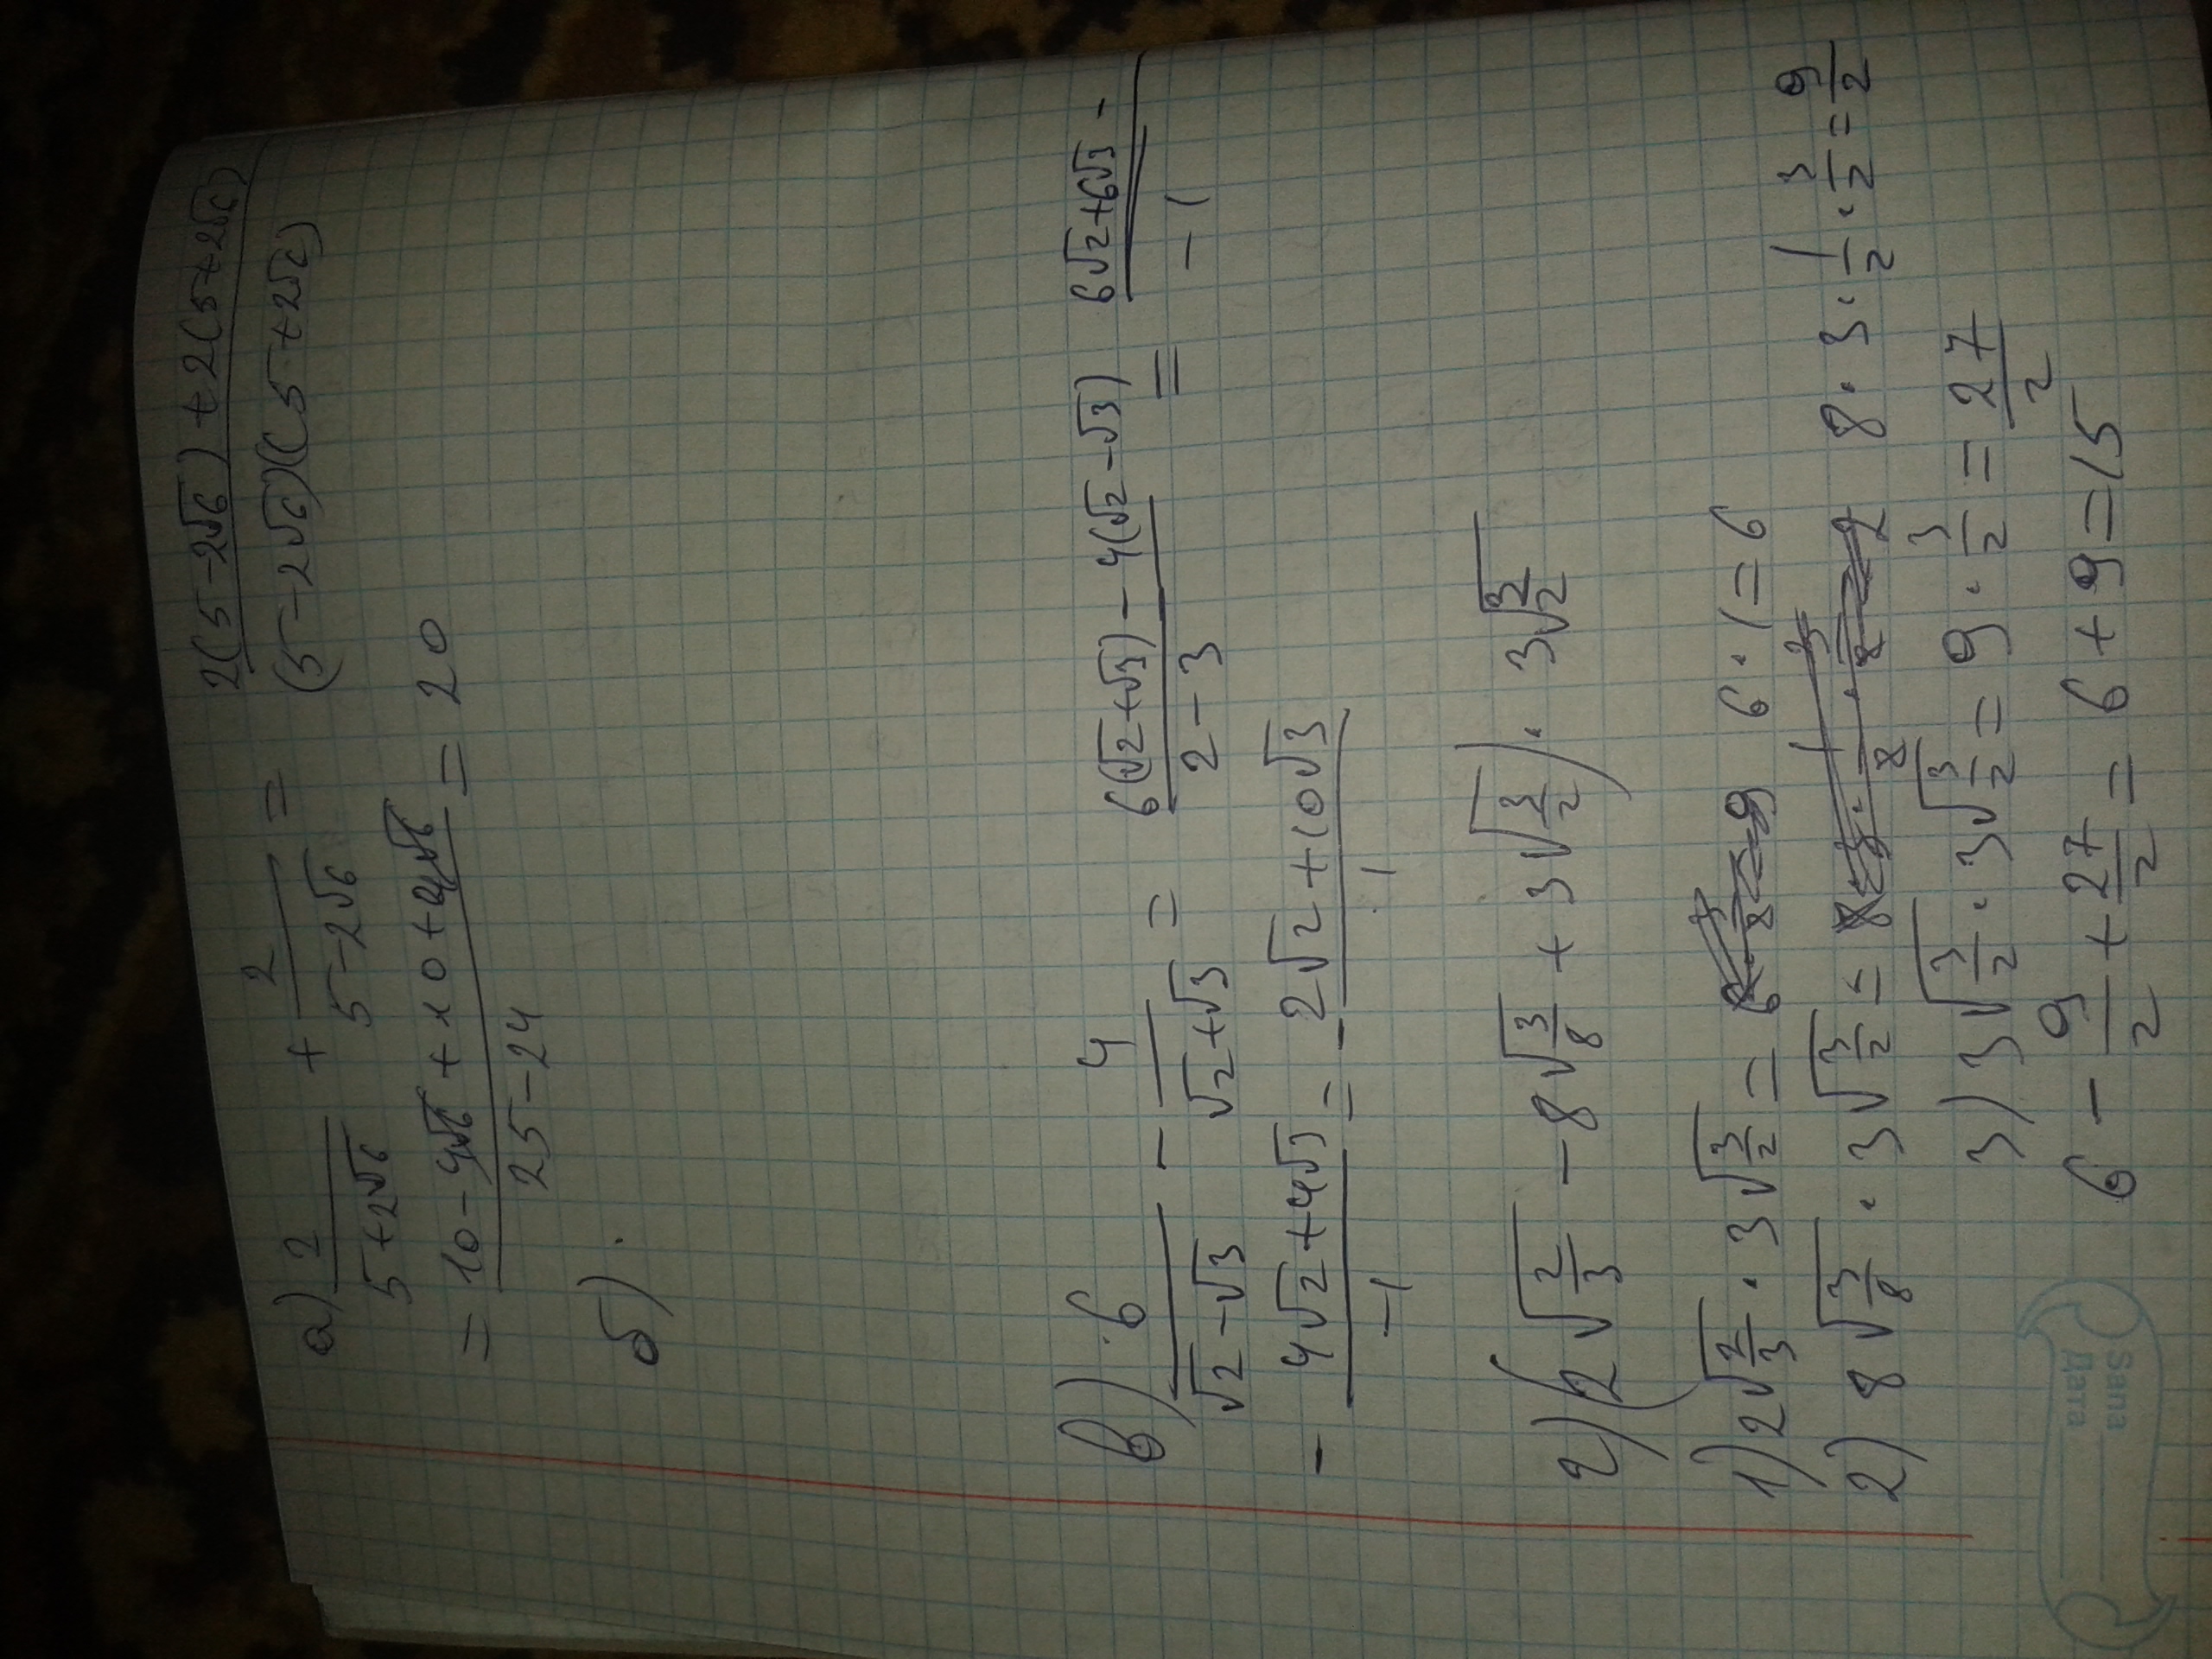 а) 2/(5+2√6) + 2/(5-2√6) = (2(5-2√6)+2(5+2√6))/((5-2√6)(5+2√6))
= (10-4√6+10+4√6)/(25-24) = 20
б) .
в) 6/(√2-√3) - 4/(√2+√3) = (6(√2+√3)-4(√2-√3))/(2-3) = (6√2+6√3-)/(-1)
- (4√2+4√3)/(-1) = - (2√2+10√3)/1
г) (2√(2/3) - 8√(3/8) + 3√(3/2)) · 3√(3/2)
1) 2√(2/3) · 3√(3/2) = 6 6·1=6
2) 8√(3/8) · 3√(3/2) = 8·3·1/2·3/2=9/2
3) 3√(3/2) · 3√(3/2) = 9·3/2 = 27/2
6 - 9/2 + 27/2 = 6+9=15
Sana
Дата